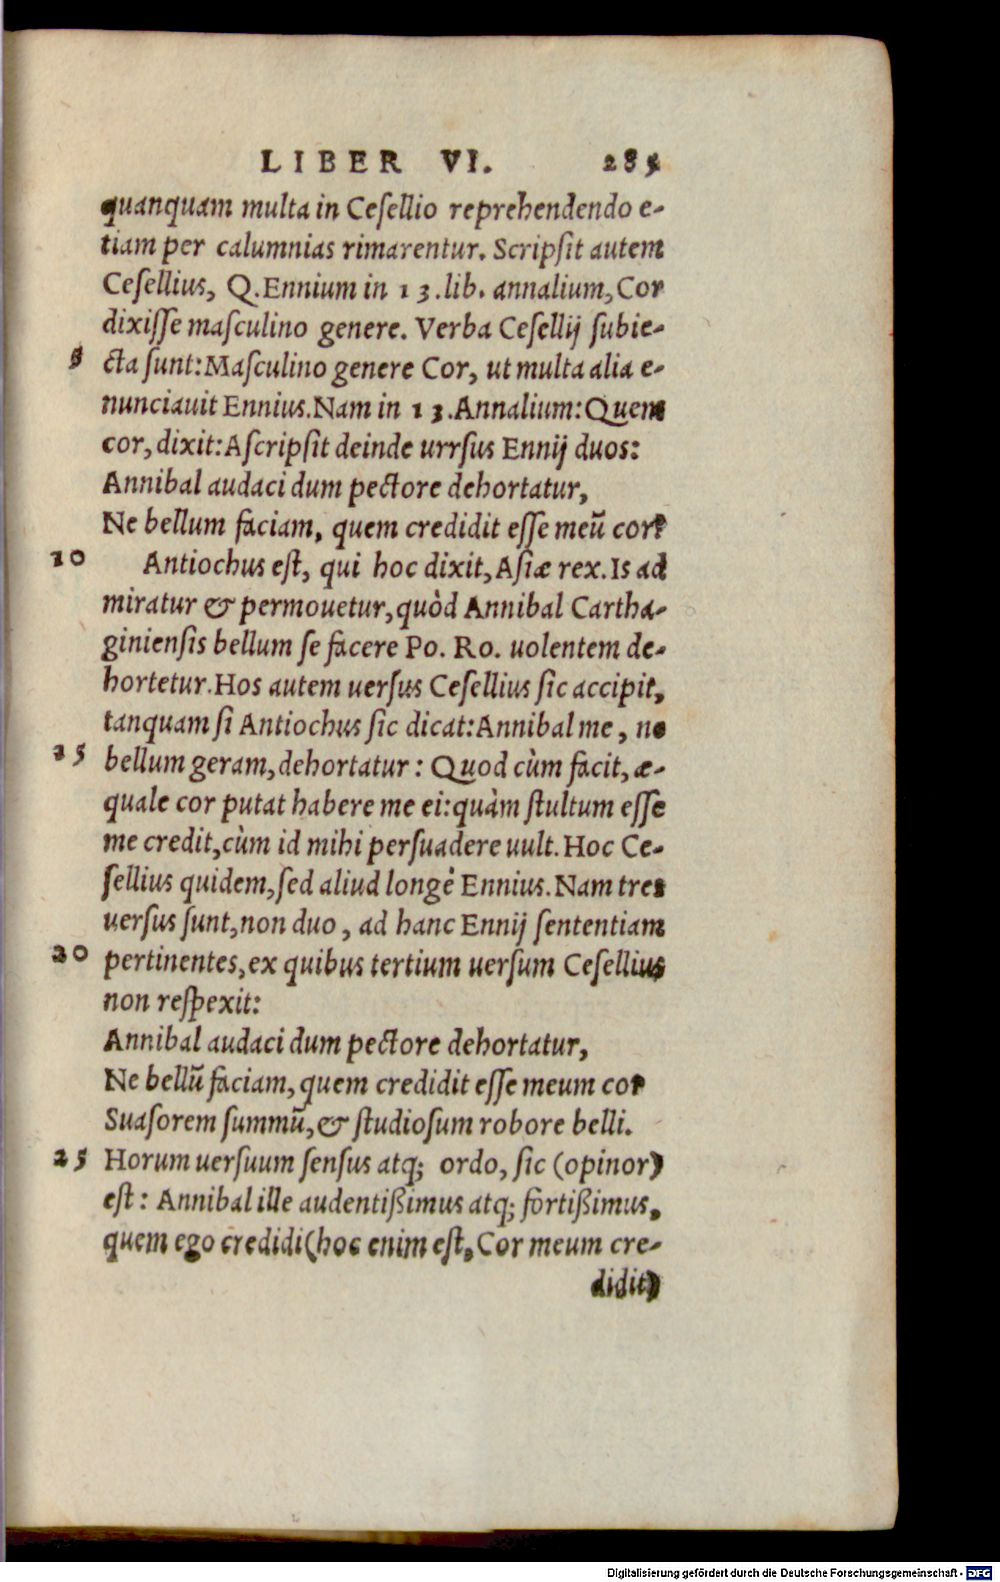 LIBER VI. 285
quanquam multa in Ceſellio reprehendendo e-
tiam per calumnias rimarentur. Scripſit autem
Ceſellius, Q. Ennium in 13. lib. annalium, Cor
dixiſſe maſculino genere. Verba Ceſellij ſubie-
5 cta ſunt: Maſculino genere Cor, ut multa alia e-
nunciauit Ennius. Nam in 13. Annalium: Quem
cor, dixit: Aſcripſit deinde urrſus Ennij duos:
Annibal audaci dum pectore dehortatur,
Ne bellum faciam, quem credidit eſſe meũ cor?
10 Antiochus eſt, qui hoc dixit, Aſiæ rex. Is ad
miratur & permouetur, quòd Annibal Cartha-
ginienſis bellum ſe facere Po. Ro. uolentem de-
hortetur. Hos autem uerſus Ceſellius ſic accipit,
tanquam ſi Antiochus ſic dicat: Annibal me, ne
15 bellum geram, dehortatur: Quod cùm facit, æ-
quale cor putat habere me ei: quàm ſtultum eſſe
me credit, cùm id mihi perſuadere uult. Hoc Ce-
ſellius quidem, ſed aliud longè Ennius. Nam tres
uerſus ſunt, non duo, ad hanc Ennij ſententiam
20 pertinentes, ex quibus tertium uerſum Ceſellius
non reſpexit:
Annibal audaci dum pectore dehortatur,
Ne bellũ faciam, quem credidit eſſe meum cor
Suaſorem ſummũ, & ſtudioſum robore belli.
25 Horum uerſuum ſenſus atq; ordo, ſic (opinor)
eſt: Annibal ille audentißimus atq; fortißimus,
quem ego credidi (hoc enim eſt, Cor meum cre-
didit)
Digitalisierung gefördert durch die Deutsche Forschungsgemeinschaft - DFG